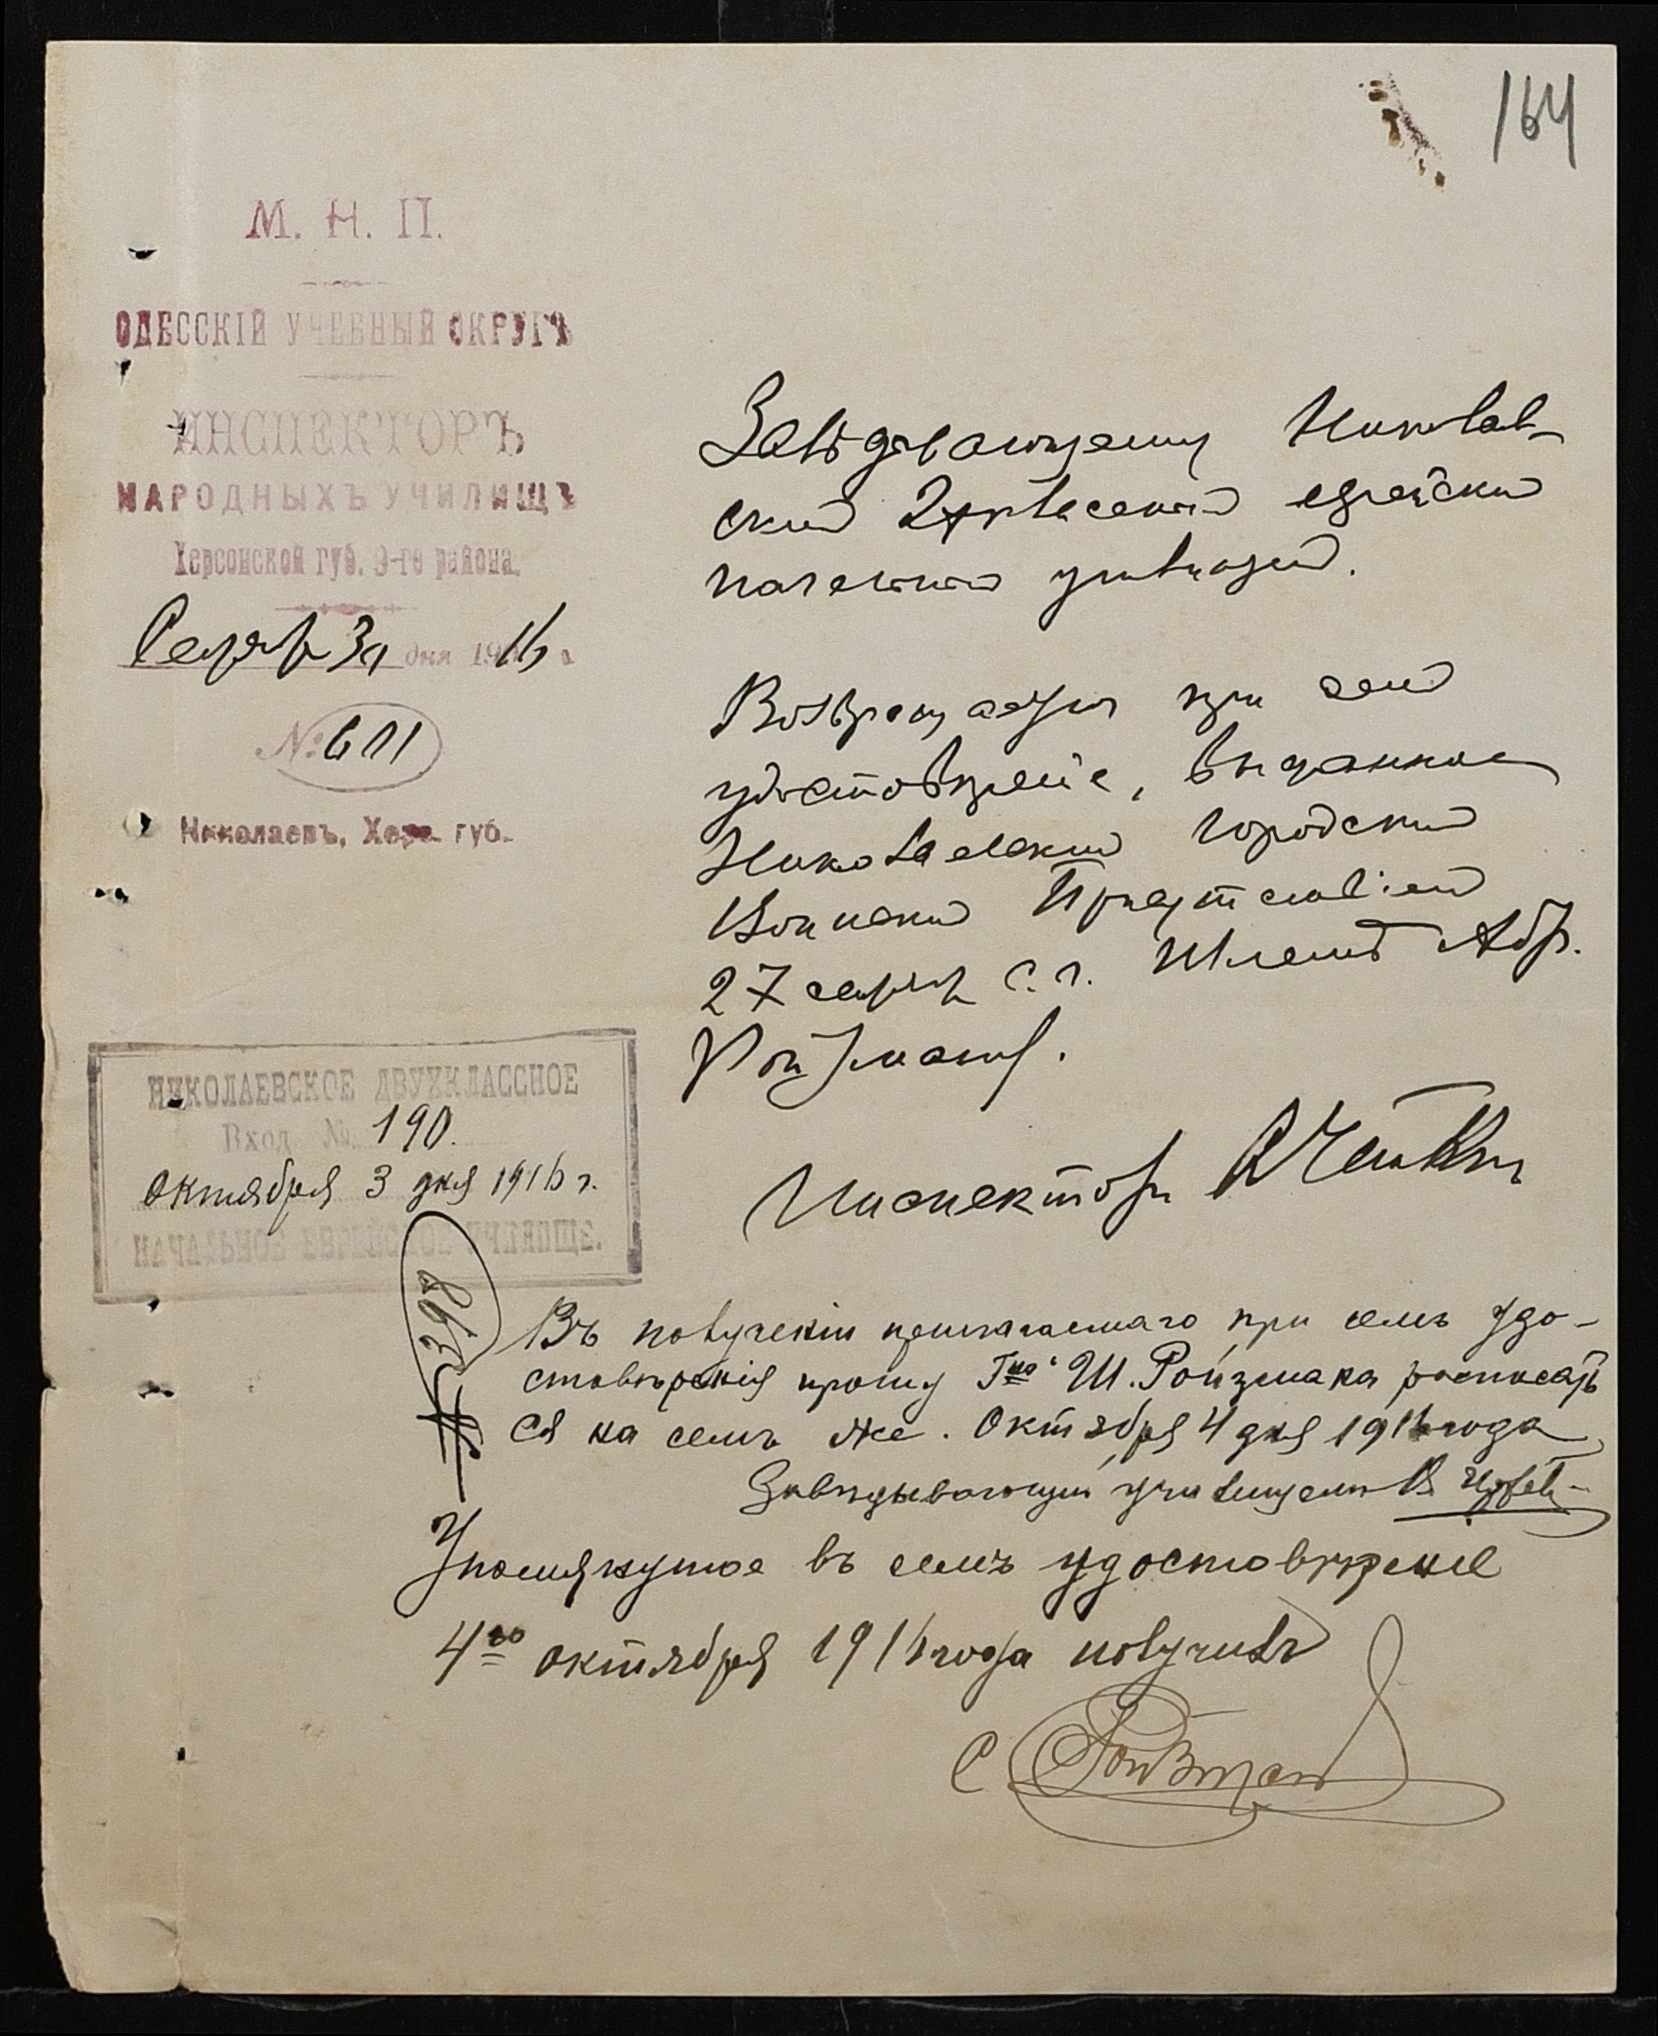 164
М. Н. П.
ОДЕССКІЙ УЧЕБНЫЙ ОКРУГЪ
ИНСПЕКТОРЪ
НАРОДНЫХЪ УЧИЛИЩЪ
Херсонской губ. 3-го района.
Сентяб 30 дня 1916 г.
№ 611
Николаевъ, Херс. губ.
Завѣдывающему Николаев-
ским 2хклассным еврейским
начальным училищем.
Возвращается при сем
удостоврение, выданное
Николаевским Городским
Воинским Присутствием
27 сентяб с. г. Шлеме Абр.
Ройзману.
Инспекторъ
НИКОЛАЕВСКОЕ ДВУХКЛАССНОЕ
Вход. № 190.
Октября 3 дня 1916 г.
НАЧАЛЬНОЕ ЕВРЕЙСКОЕ УЧИЛИЩЕ.
№ 398
Въ полученіи прилагаемаго при семъ удо-
стовѣренія прошу Гна Ш. Ройзмана расписать
ся на семъ же. Октября 4 дня 1916 года
Завѣдывающій училищемъ
Упомянутое въ семъ удостовѣрение
4го октября 1916 года получилъ
С Ройзман